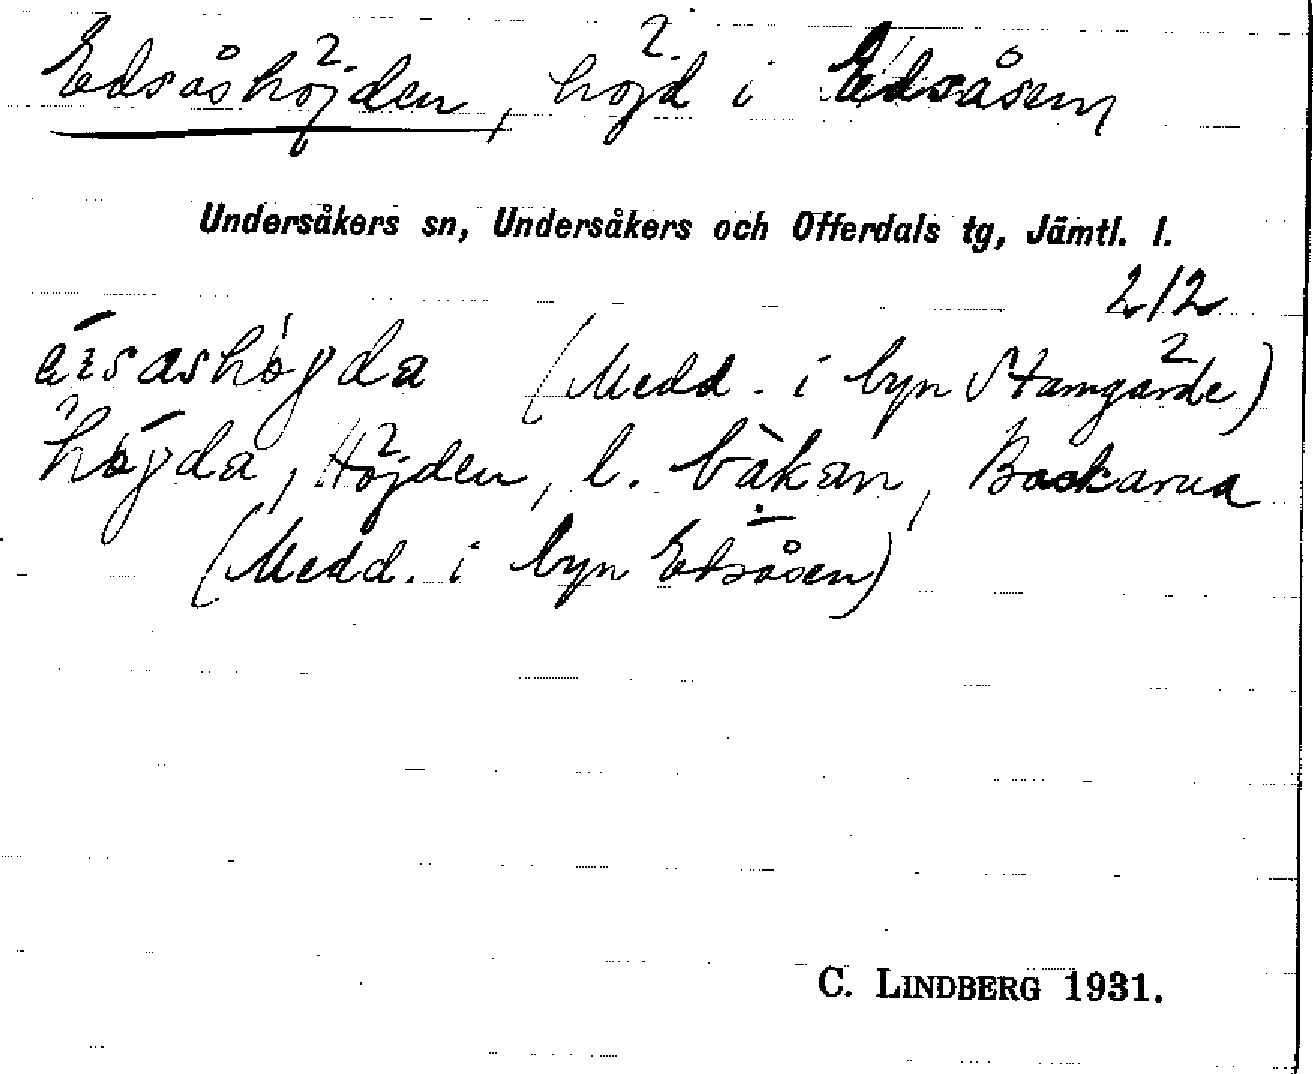 Edsåshöjden, höjd i Edsåsen
Undersåkers sn, Undersåkers och Offerdals tg, Jämtl. l.
2/2
(Medd. i byn Stamgärde)
högda, Höjden, l. bàkan, Backarna
(Medd. i byn Edsåsen)
C. LINDBERG 1931.